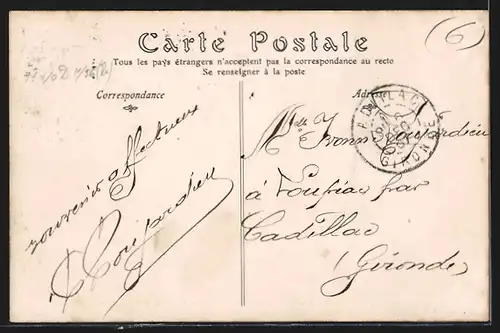 Carte Postale
Tous les pays étrangers n'acceptent pas la correspondance au recto
Se renseigner à la poste
Correspondance
Adresse
6
CADILLAC
GIRONDE
Mlle Yvonne Coujardieu
à Loupiac par
Cadillac
(Gironde)
souvenirs affectueux
Coujardieu